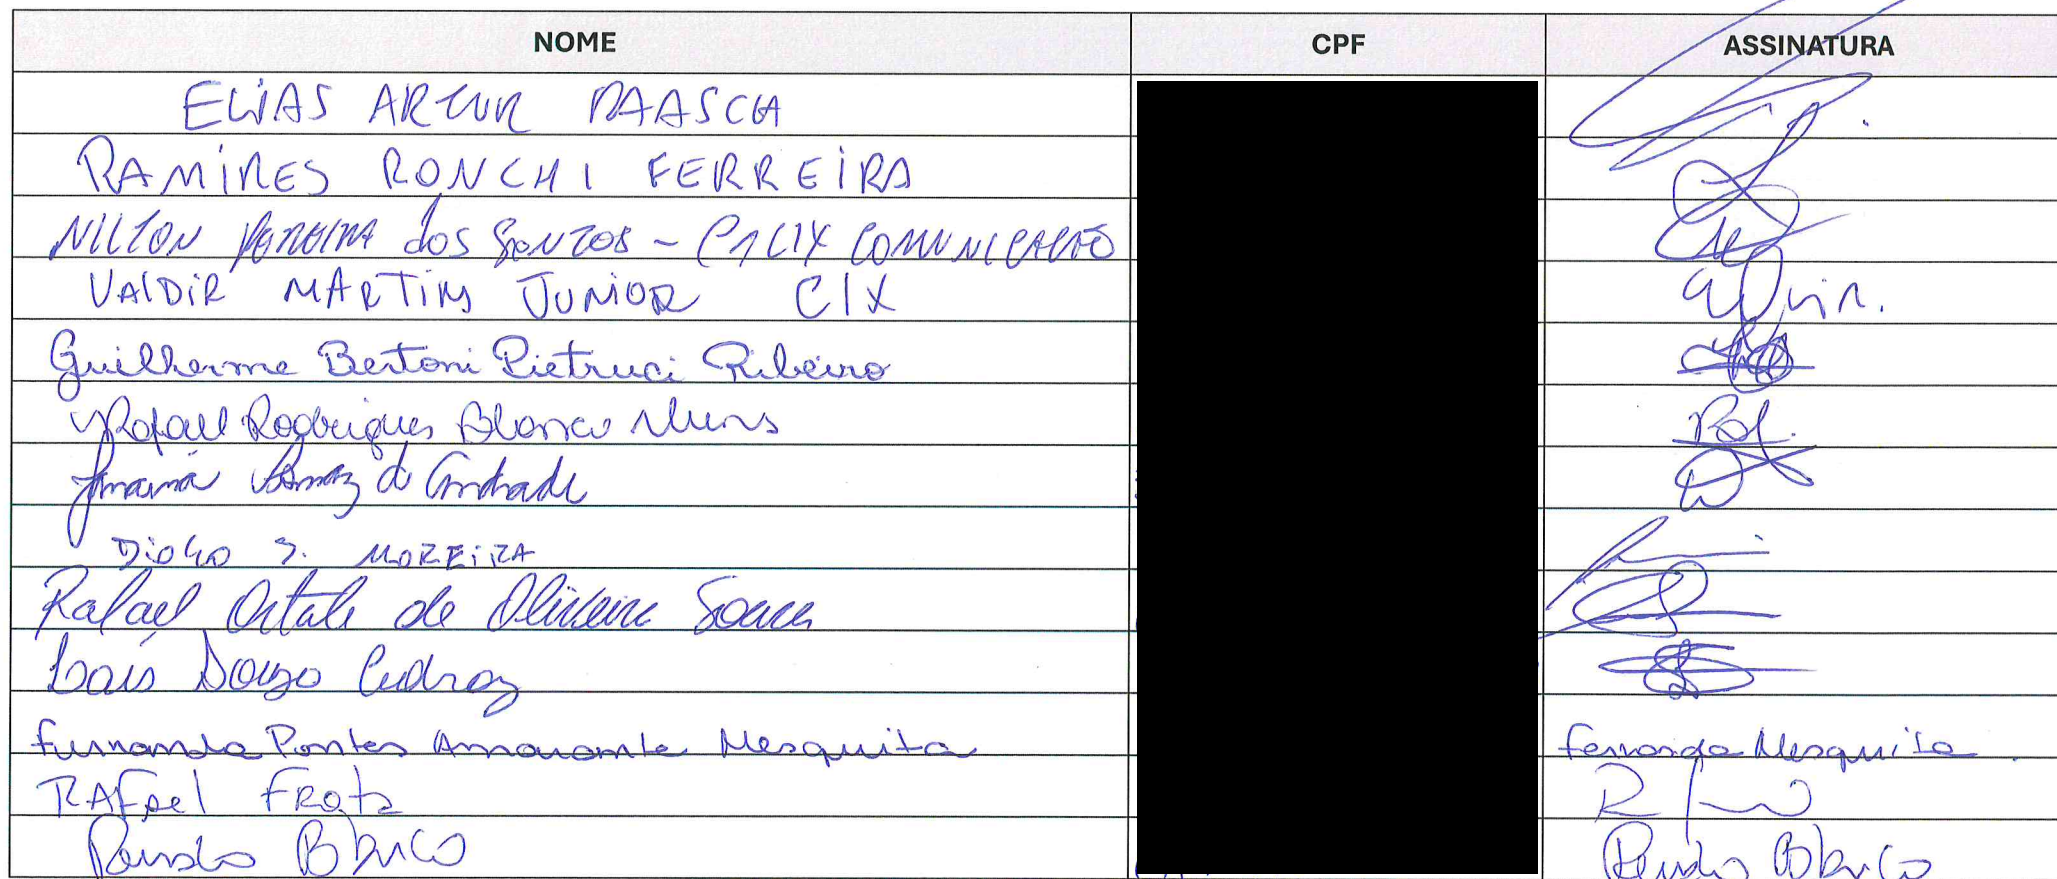 NOME CPF ASSINATURA
ELIAS ARTUR PAASCH
RAMIRES RONCHI FERREIRA
NILTON PEREIRA dos SANTOS - CALIX COMUNICAÇÃO
VALDIR MARTINS JUNIOR CIX
Guilherme Bertoni Pietruci Ribeiro
Rafael Rodrigues Blanco Muns Raf.
de Andrade
DIOGO S. MOREIRA
Rafael Ortale de Oliveira Souza
Laís Souza
Fernanda Pontes Amarante Mesquita Fernanda Mesquita
RAFAEL FROTA